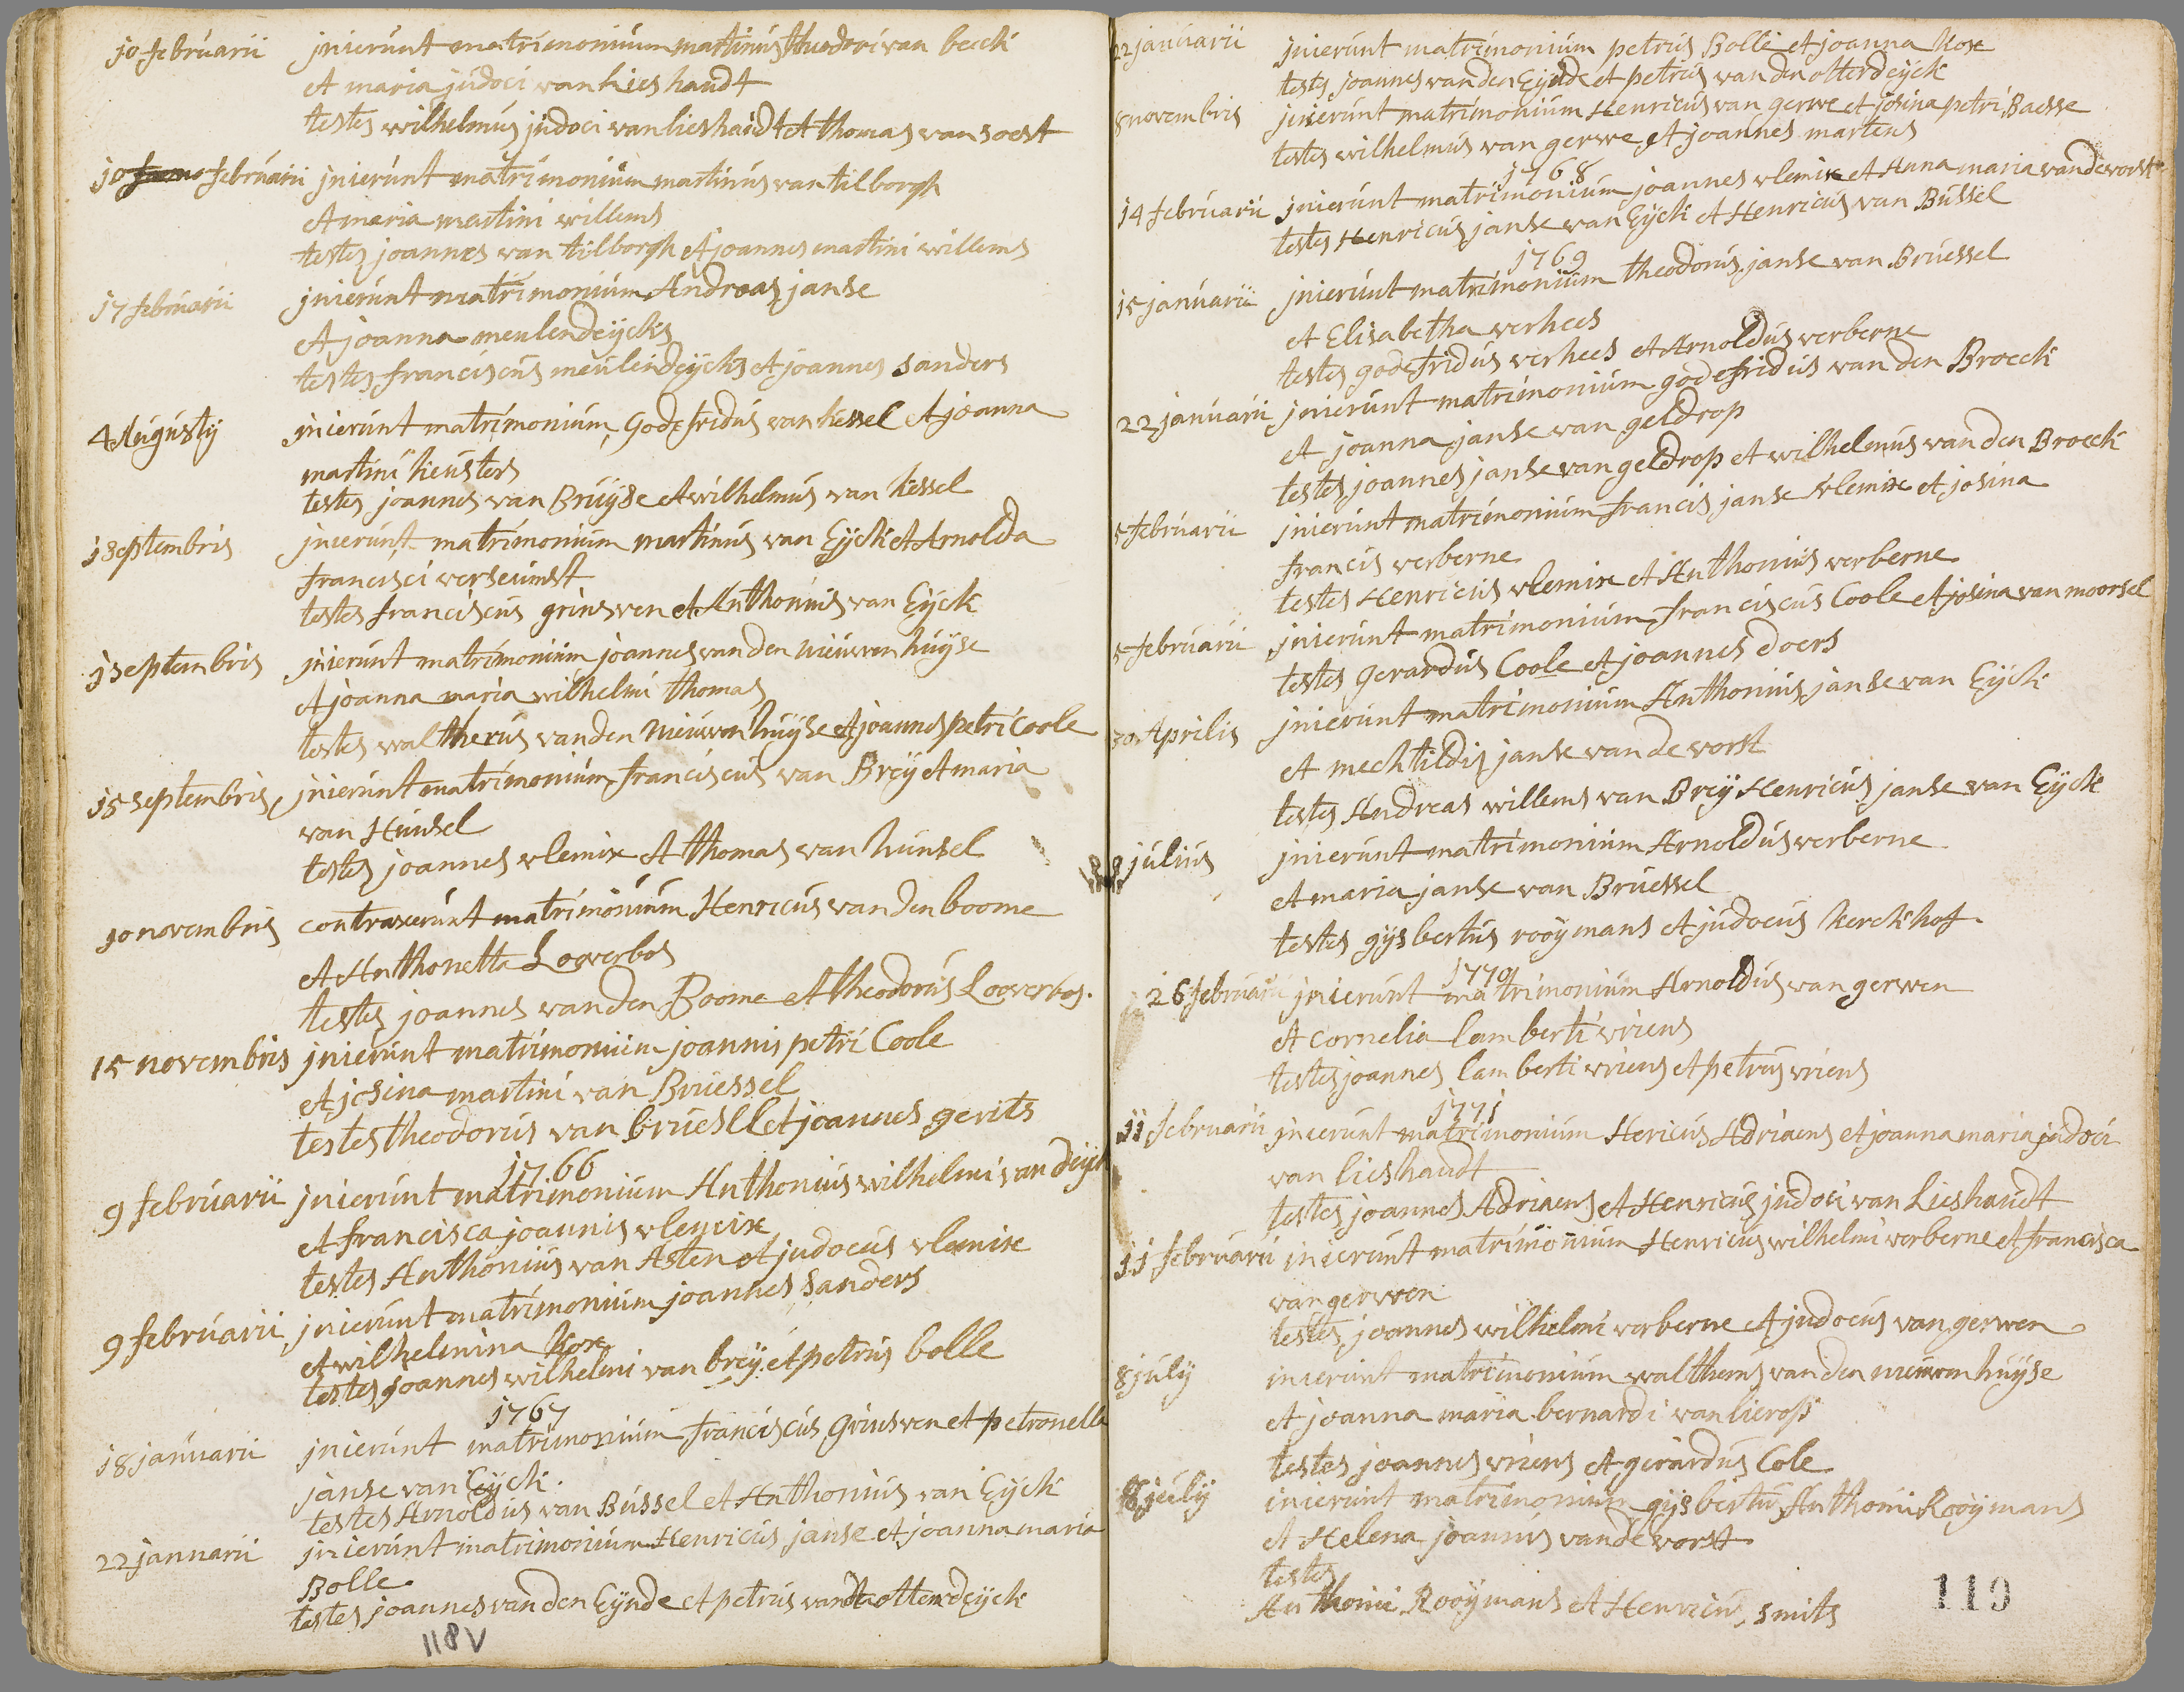 10 februarii jnierunt matrimonium martinus theodori van beeck
et maria judoci van lieshaudt
testes wilhelmus judoci van lieshaudt et thomas van soest
10 februarii jnierunt matrimonium martinus van tilborgh
et maria martini willems
testes joannes van tilborgh et joannes martini willems
17 februarii jnierunt matrimonium Andreas janse
et joanna meulendeijcks
testes franciscus meulendeijcks et joannes sanders
4 Augusty jnierunt matrimonium Godefridus van kessel et joanna
martini keusters
testes joannes van Bruijse et wilhelmus van kessel
1 septembris jnierunt matrimonium martinus van Eijck et Arnolda
francisci
testes franciscus grinsven et Anthonius van Eijck
1 septembris jnierunt matrimonium joannes van den nieuwenhuijse
et joanna maria wilhelmi thomas
testes waltherus van den nieuwenhuijse et joannes petri Coole
15 septembris jnierunt matrimonium franciscus van Breij et maria
van Hunsel
testes joannes vlemix et thomas van hunsel
10 novembris contraxerunt matrimonium Henricus van den boome
et Anthonetta Looverbos
testes joannes van den Boome et theodorus Looverbos.
15 novembris jnierunt matrimonium joannis petri Coole
et josina martini van Bruessel
testes theodorus van bruesll et joannes gerits
1766
9 februarii jnierunt matrimonium Anthonius wilhelmi van
et francisca joannis vlemix
testes Anthonius van Asten et judocus vlemix
9 februarii jnierunt matrimonium joannes sanders
et wilhelmina Kox
testes joannes wilhelmi van breij et petrus bolle
1767
18 januarii jnierunt matrimonium franciscus Grinsven et petronella
janse van Eijck.
testes Arnoldus van Bussel et Anthonius van Eijck
22 januarii jnierunt matrimonium Henricus janse et joanna maria
Bolle
testes joannes van den Eijnde et petrus van otterdeijck
118v
22 januarii jnierunt matrimonium petrus Bolle et joanna Kox
testes joannes van den Eijnde et petrus van den otterdeijck
8 novembris jnierunt matrimonium Henricus van gerwe et josina petri Baesse
testes wilhelmus van gerwe et joannes martens
1768
14 februarii jnierunt matrimonium joannes vlemix et Anna maria van de vorst
testes Henricus janse van Eijck et Henricus van Bussel
1769
15 januarii jnierunt matrimonium theodorus janse van Bruessel
et Elisabetha verhees
testes godefridus verhees et Arnoldus verberne
22 januarii jnierunt matrimonium godefridus van den Broeck
et joanna janse van geldrop
testes joannes janse van geldrop et wilhelmus van den Broeck
5 februarii jnierunt matrimonium francis janse vlemix et josina
francis verberne
testes Henricus vlemix et Anthonius verberne
5 februarii jnierunt matrimonium franciscus Coole et josina van moorsel
testes gerardus Coole et joannes doers
30 Aprilis jnierunt matrimonium Anthonius janse van Eijck
et mechtildis janse van de vorst
testes Andreas willems van Breij Henricus janse van Eijck
julius jnierunt matrimonium Arnoldus verberne
et maria janse van Bruessel
testes gijsbertus rooijmans et judocus kerckhof.
1770
26 februarii jnierunt matrimonium Arnoldus van gerwen
et cornelia lamberti vriens
testes joannes lamberti vriens et petrus vriens
1771
11 februarii jnierunt matrimonium Hericus Adriaens et joanna maria judoci
van lieshaudt
testes joannes Adriaens et Henricus judoci van Lieshaudt
11 februarii inierunt matrimonium Henricus wilhelmi verberne et francisca
van gerwen
testes joannes wilhelmi verberne et judocus van gerwen
8 july inierunt matrimonium waltherus van den nieuwenhuijse
et joanna maria bernardi van lierop
testes joannes vriens et gerardus Cole
july inierunt matrimonium gijsbertus Anthoni Rooijmans
et Helena joannis van de vorst
testes
Anthonii Rooijmans et Henricus smits
119